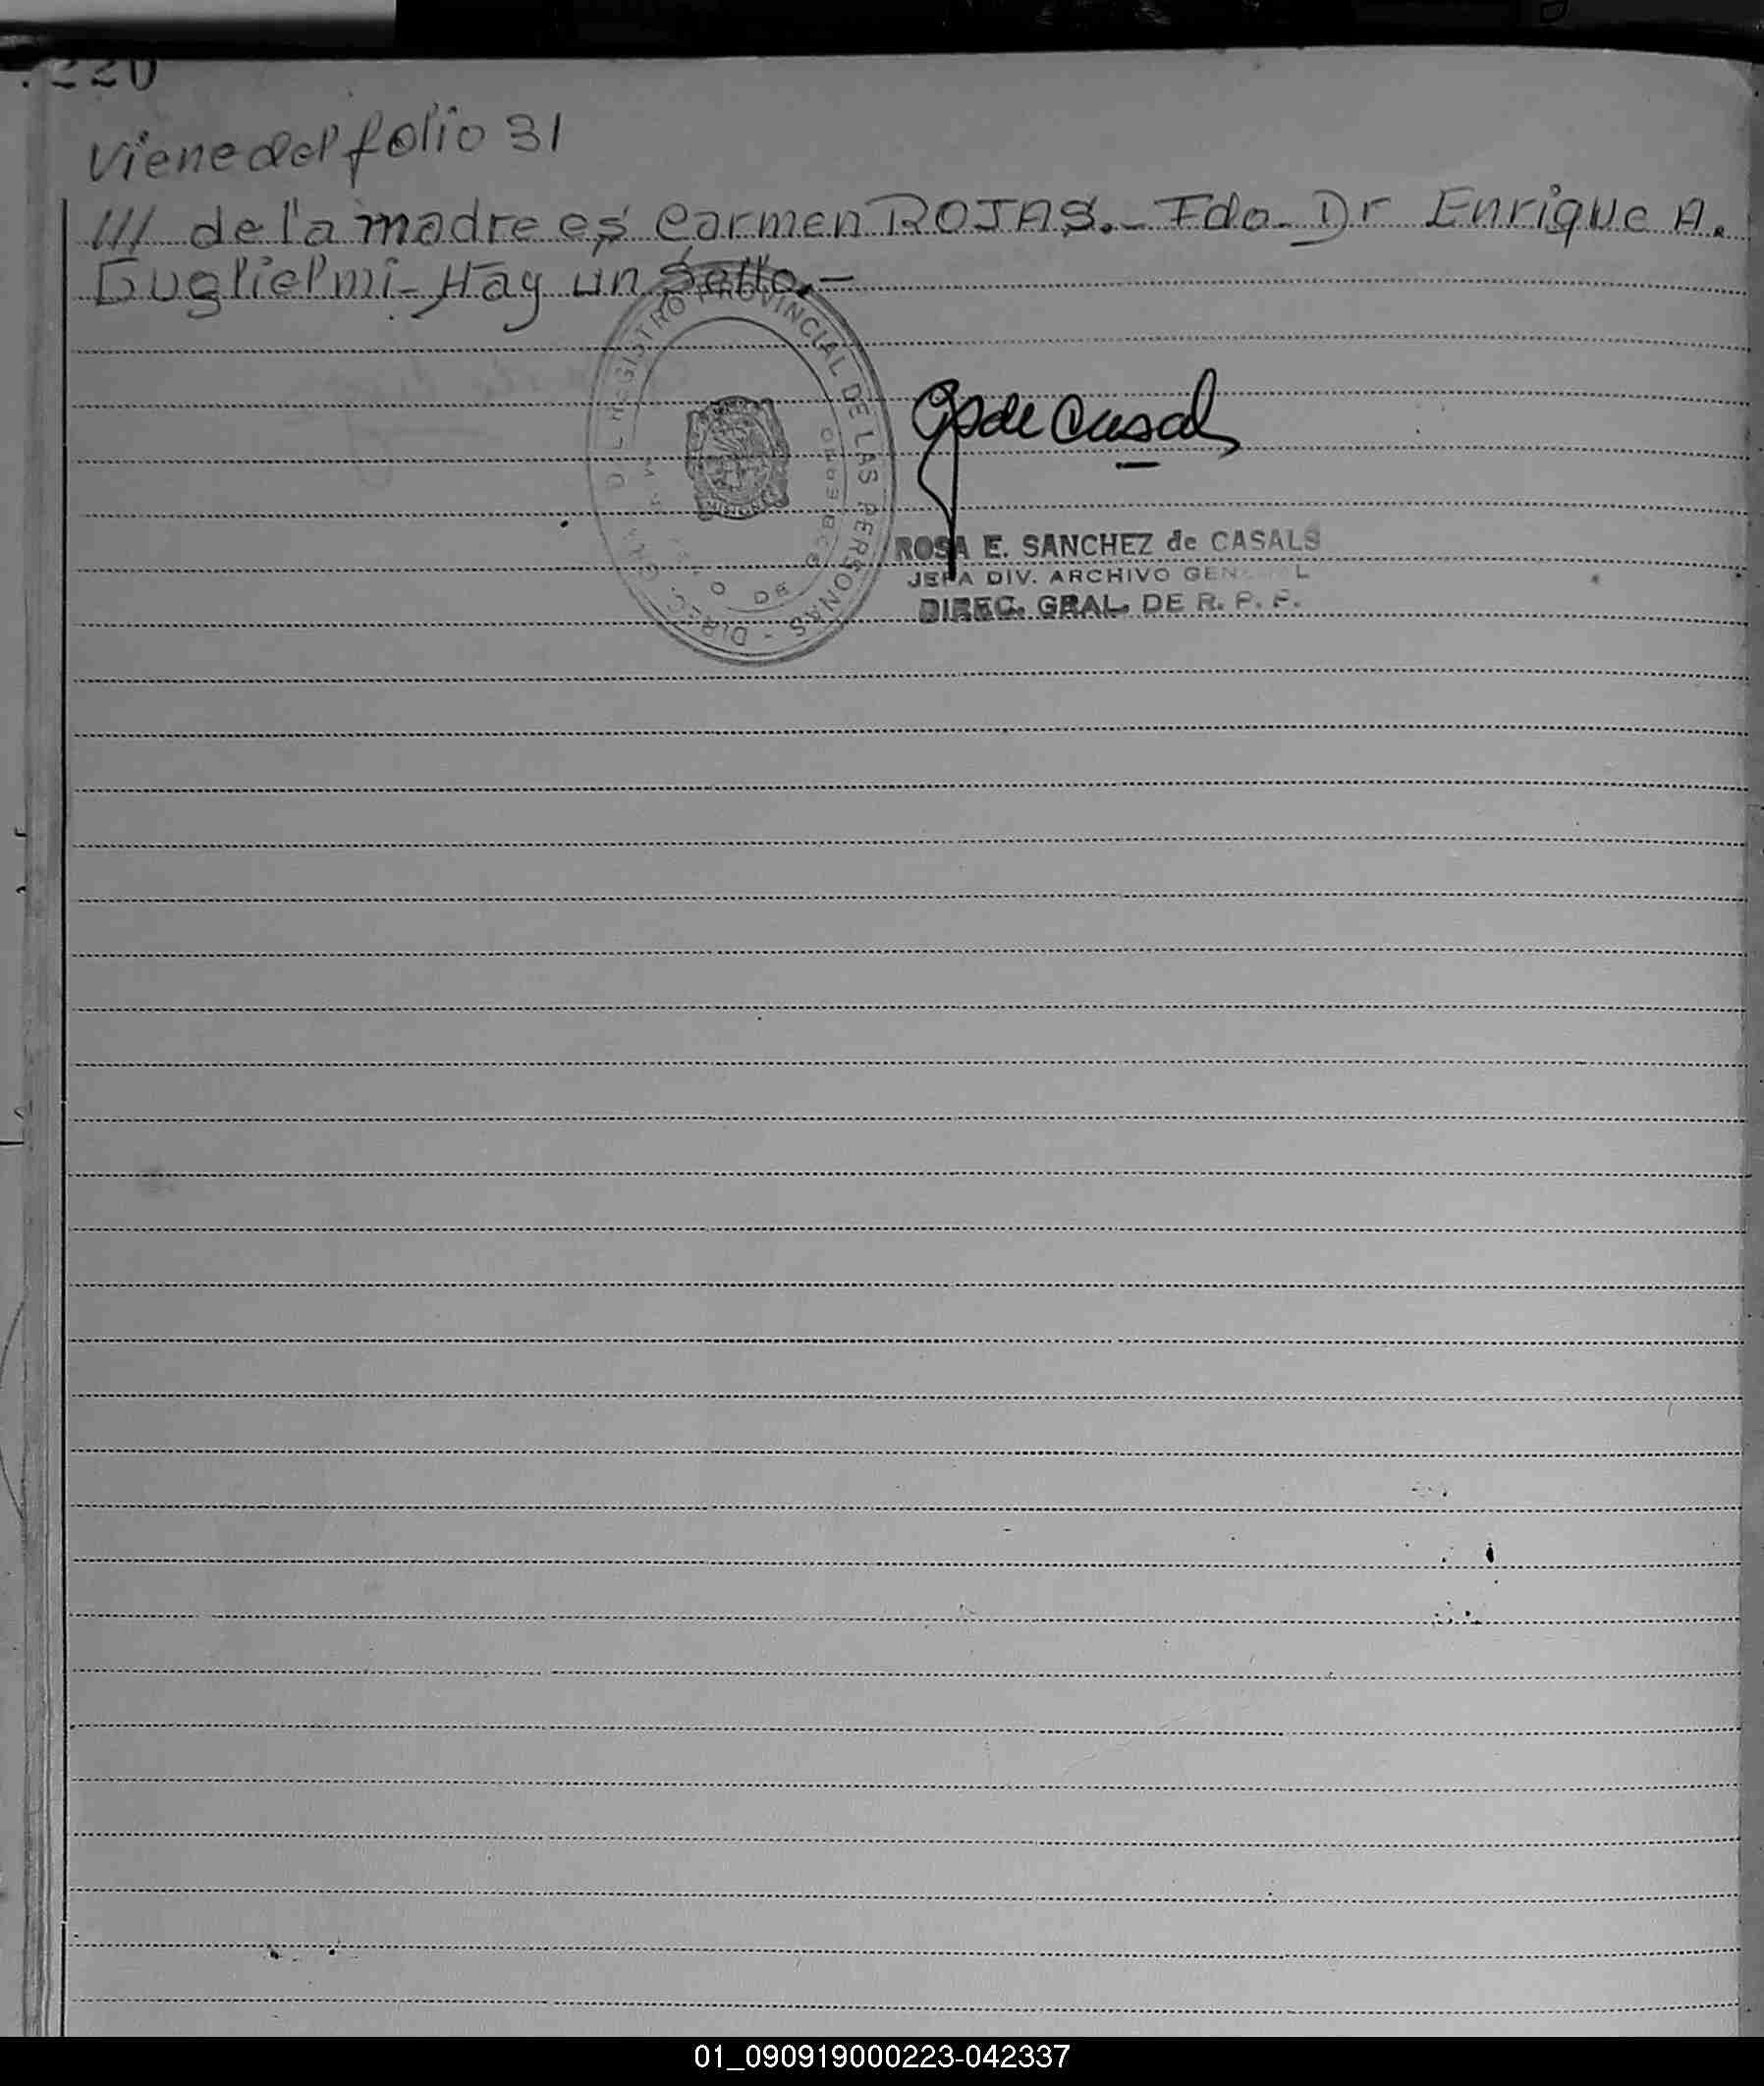 220
Viene del folio 31
/// de la madre es Carmen ROJAS.- Fdo- Dr Enrique A.
Guglielmi- Hay un Sello.-
REGISTRO PROVINCIAL DE LAS PERSONAS - DIREC
MISIONES
GSde Casals
ROSA E. SANCHEZ de CASALS
JEFA DIV. ARCHIVO GENERAL
DIREC. GRAL. DE R. P. P.
01_090919000223-042337